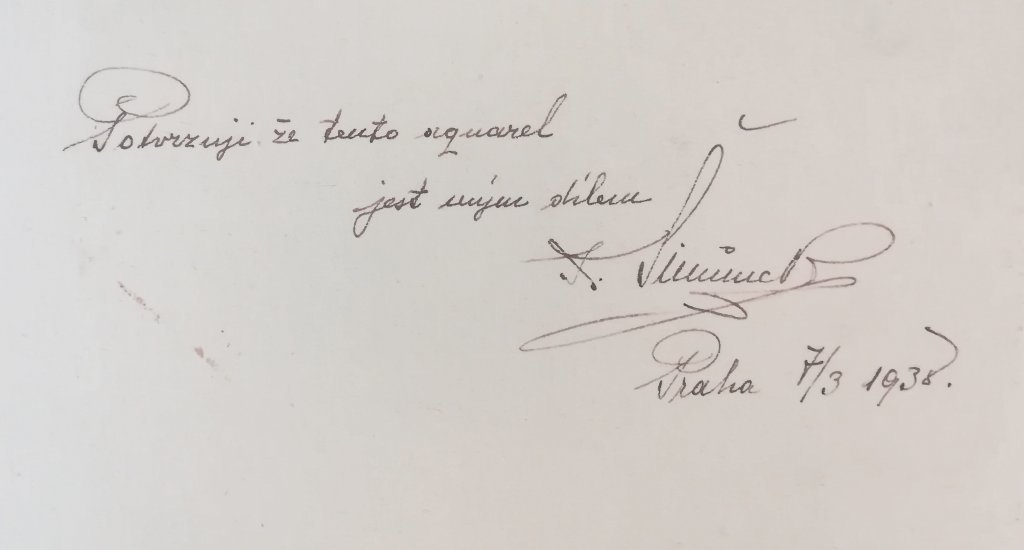 Potvrzuji že tento aquarel
jest mým dílem
X. Šimůnek
Praha 7/3 1938.